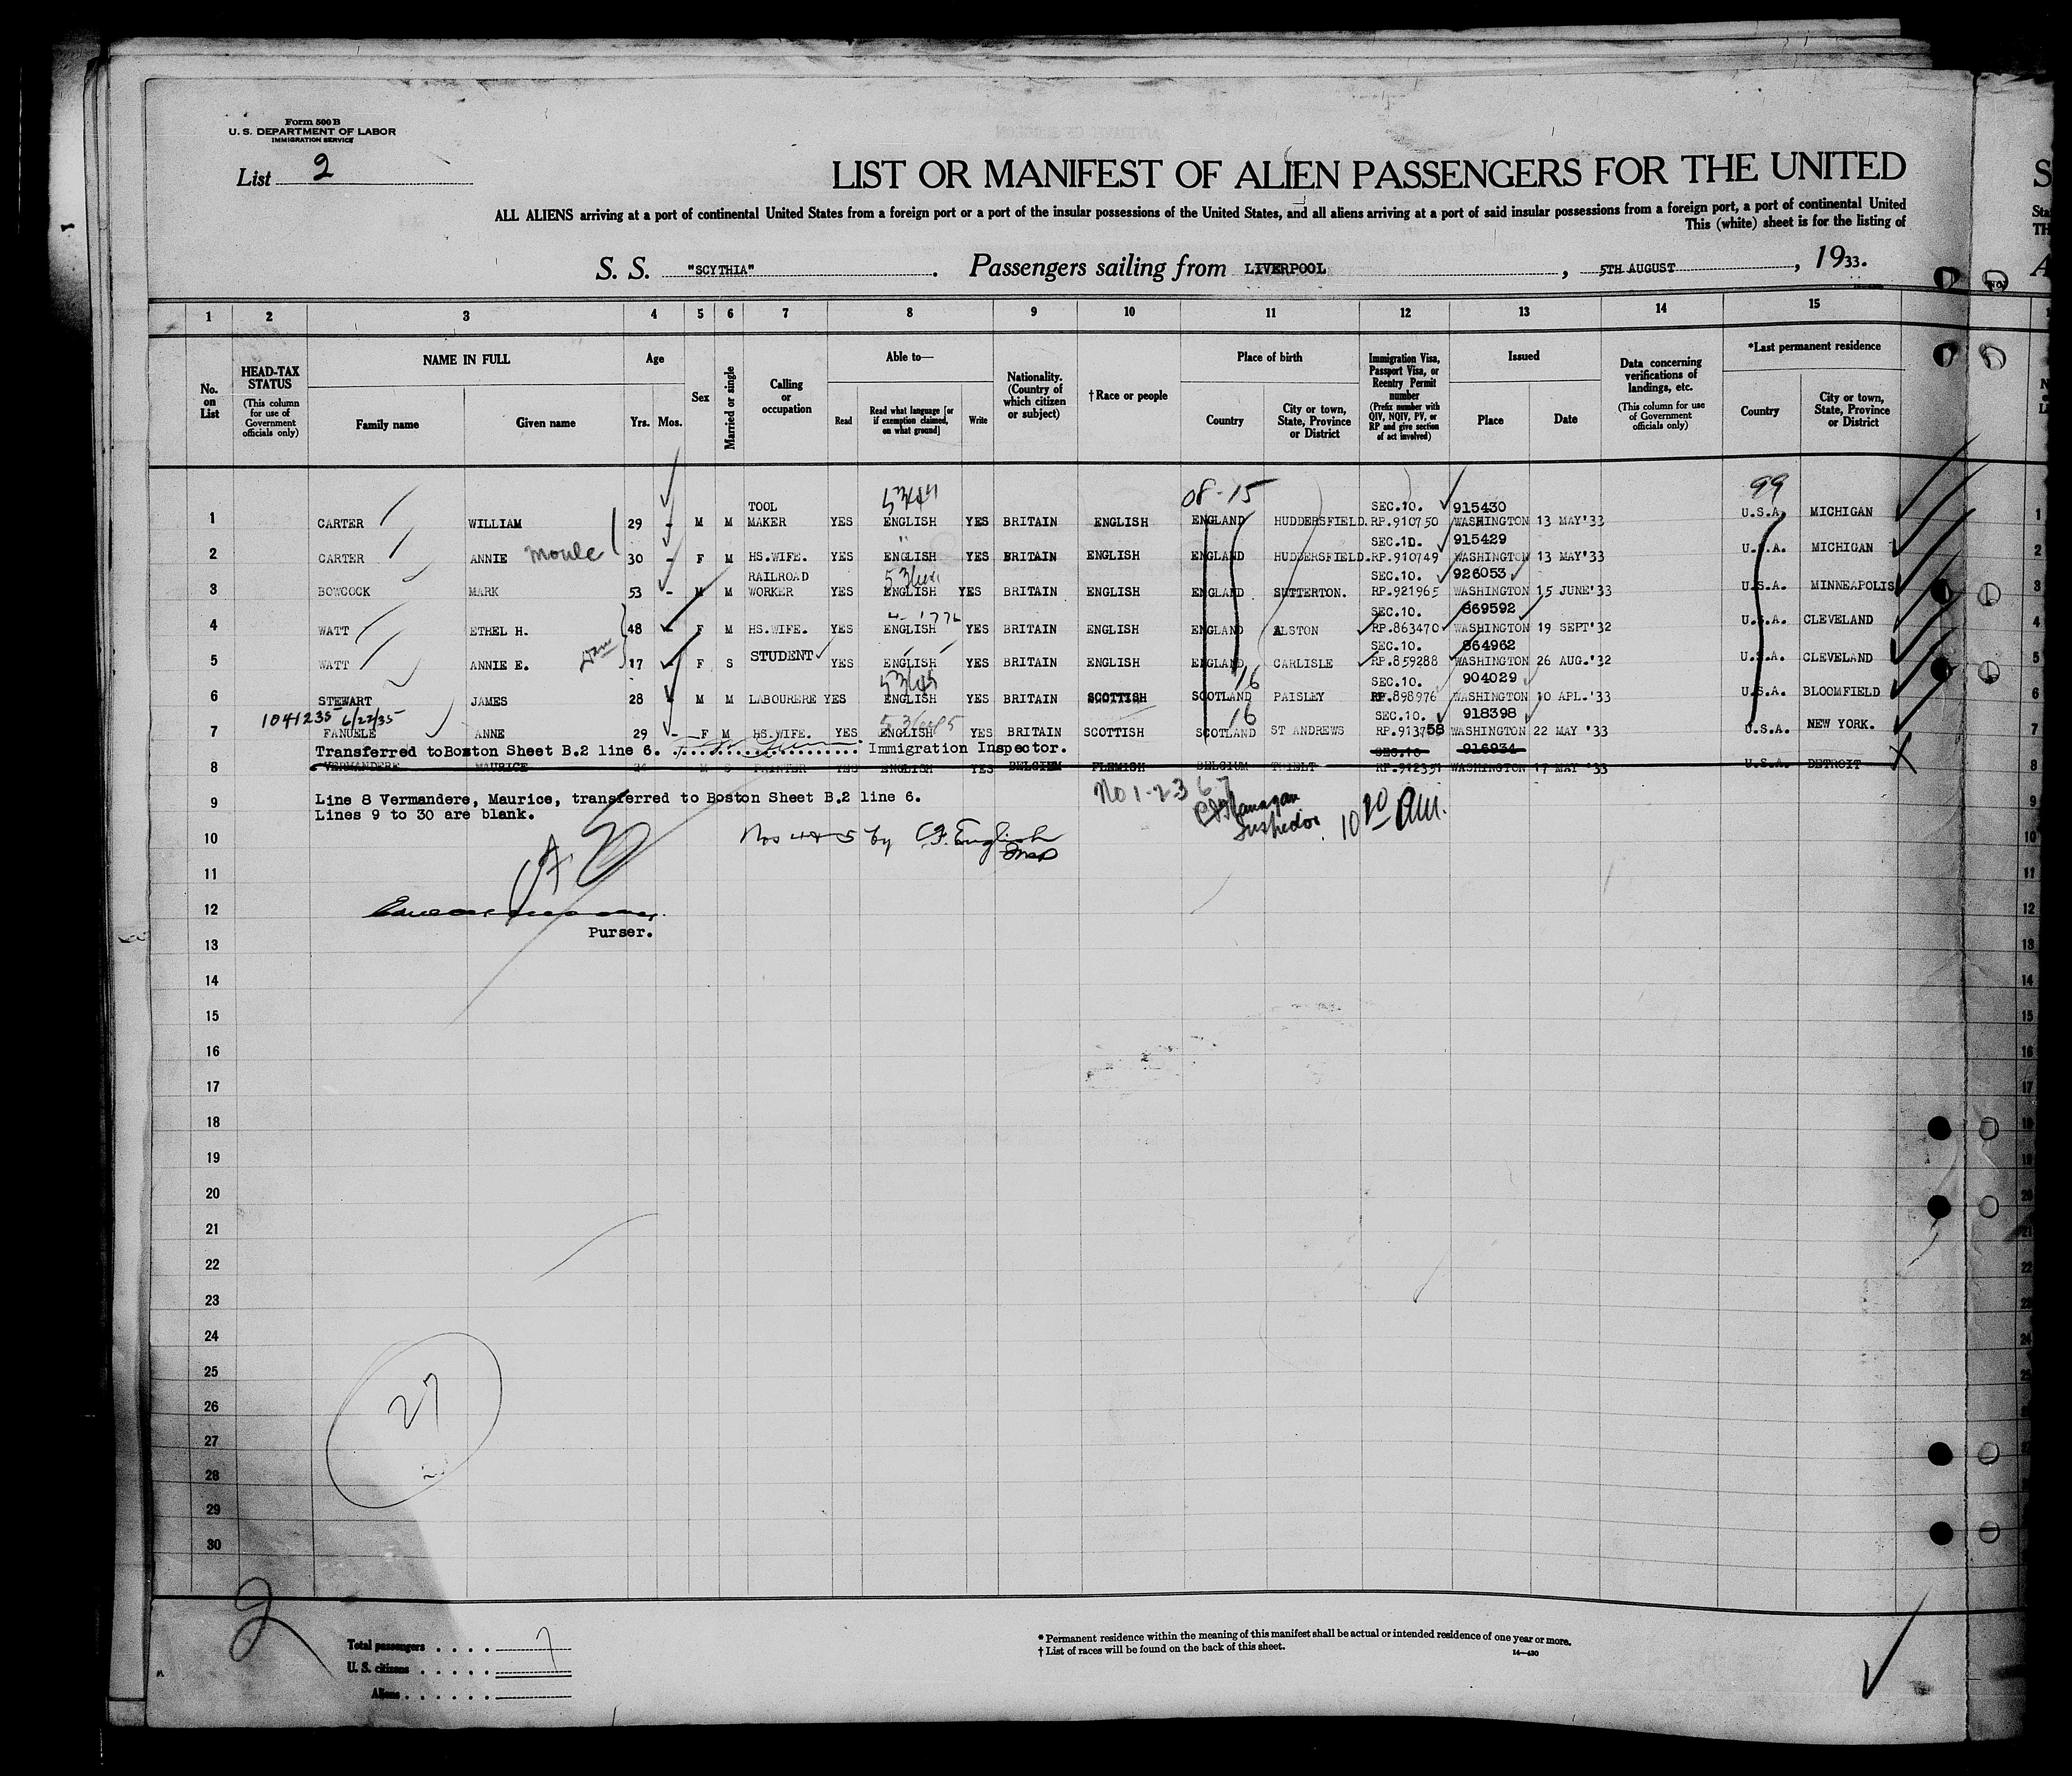 Form 500 B
U. S. DEPARTMENT OF LABOR
IMMIGRATION SERVICE
List 2
LIST OR MANIFEST OF ALIEN PASSENGERS FOR THE UNITED
ALL ALIENS arriving at a port of continental United States from a foreign port or a port of the insular possessions of the United States, and all aliens arriving at a port of said insular possessions from a foreign port, a port of continental United
This (white) sheet is for the listing of
S. S. "SCYTHIA". Passengers sailing from LIVERPOOL, 5TH AUGUST, 1933.
1 2 3 4 5 6 7 8 9 10 11 12 13 14 15
No. on List
HEAD-TAX STATUS (This column for use of Government officials only)
NAME IN FULL
Family name Given name
Age
Yrs. Mos.
Sex
Married or single
Calling or occupation
Able to—
Read Read what language [or if exemption claimed, on what ground] Write
Nationality. (Country of which citizen or subject)
†Race or people
Place of birth
Country City or town, State, Province or District
Immigration Visa, Passport Visa, or Reentry Permit number (Prefix number with QIV, NQIV, PV, or RP and give section of act involved)
Issued
Place Date
Data concerning verifications of landings, etc. (This column for use of Government officials only)
*Last permanent residence
Country City or town, State, Province or District
08-15 99
TOOL SEC.10. 915430
1 CARTER WILLIAM 29 - M M MAKER YES ENGLISH YES BRITAIN ENGLISH ENGLAND HUDDERSFIELD. RP.910750 WASHINGTON 13 MAY'33 U.S.A. MICHIGAN 1
SEC.10. 915429
2 CARTER ANNIE Moule 30 - F M HS.WIFE. YES ENGLISH YES BRITAIN ENGLISH ENGLAND HUDDERSFIELD. RP.910749 WASHINGTON 13 MAY'33 U.S.A. MICHIGAN 2
RAILROAD SEC.10. 926053
3 BOWCOCK MARK 53 - M M WORKER YES ENGLISH YES BRITAIN ENGLISH ENGLAND SUTTERTON. RP.921965 WASHINGTON 15 JUNE'33 U.S.A. MINNEAPOLIS 3
SEC.10. 869592
4 WATT ETHEL H. 48 - F M HS.WIFE. YES ENGLISH YES BRITAIN ENGLISH ENGLAND ALSTON RP.863470 WASHINGTON 19 SEPT'32 U.S.A. CLEVELAND 4
SEC.10. 864962
5 WATT ANNIE E. 17 - F S STUDENT YES ENGLISH YES BRITAIN ENGLISH ENGLAND CARLISLE RP.859288 WASHINGTON 26 AUG.'32 U.S.A. CLEVELAND 5
16 SEC.10. 904029
6 STEWART JAMES 28 - M M LABOURERE YES ENGLISH YES BRITAIN SCOTTISH SCOTLAND PAISLEY RP.898976 WASHINGTON 10 APL.'33 U.S.A. BLOOMFIELD 6
1041235 6/22/35 16 SEC.10. 918398
7 FANUELE ANNE 29 - F M HS.WIFE. YES ENGLISH YES BRITAIN SCOTTISH SCOTLAND ST ANDREWS RP.913758 WASHINGTON 22 MAY '33 U.S.A. NEW YORK. 7
Transferred to Boston Sheet B.2 line 6. Immigration Inspector. SEC.10 916934
8 VERMANDERE MAURICE 24 M S PAINTER YES ENGLISH YES BELGIUM FLEMISH BELGIUM THIELT RP.912351 WASHINGTON 17 MAY '33 U.S.A. DETROIT 8
9 Line 8 Vermandere, Maurice, transferred to Boston Sheet B.2 line 6. No 1-2-3 6-7 9
Lines 9 to 30 are blank. Inspector 10 20 AM.
10 Nos 4+5 by C.F. English Insp 10
11 11
12 12
Purser.
13 13
14 14
15 15
16 16
17 17
18 18
19 19
20 20
21 21
22 22
23 23
24 24
25 25
26
27
28
29
30
27
2
Total passengers . . . . 7
U. S. citizens . . . . .
Aliens . . . . . .
* Permanent residence within the meaning of this manifest shall be actual or intended residence of one year or more.
† List of races will be found on the back of this sheet.
14—430